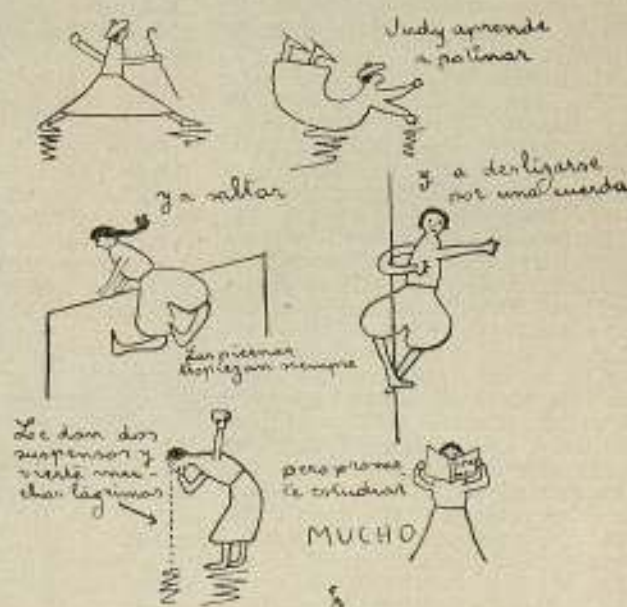 Judy aprende
a patinar
y a saltar
y a deslizarse
por una cuerda
Las piernas
tropiezan siempre
Le dan dos
suspensos y
vierte mu-
chas lágrimas
pero prome
te estudiar
MUCHO